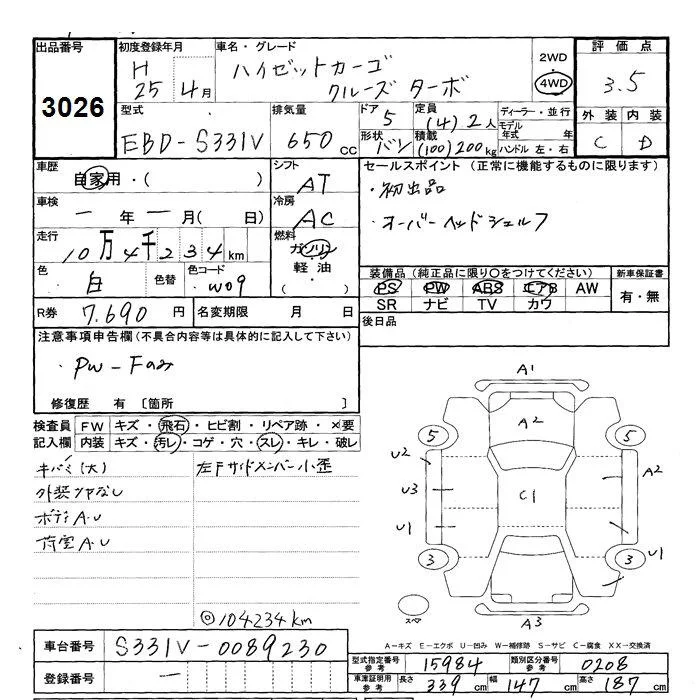 出品番号 3026
初度登録年月 H 25年 4月
車名・グレード ハイゼットカーゴ クルーズ ターボ
2WD 4WD
評価点 3.5
外装 内装
C D
型式 EBD-S331V
排気量 650cc
ドア 5
形状 バン
定員 (4) 2人
積載 (100)200kg
ディーラー・並行
モデル年式 年
ハンドル 左・右
車歴 自家用・( )
シフト AT
セールスポイント (正常に機能するものに限ります)
・初出品
・オーバーヘッドシェルフ
車検 一年一月( 日)
冷房 AC
走行 10万4千234km
燃料 ガソリン 軽油 ( )
色 白 色替 色コード W09
装備品 (純正品に限り○をつけてください)
新車保証書
PS PW ABS エアB AW
SR ナビ TV カワ
有・無
R券 7,690円
名変期限 月 日
後日品
注意事項申告欄(不具合内容等は具体的に記入して下さい)
・PW-Fのみ
修復歴 有 [箇所 ]
検査員記入欄
FW キズ・飛石・ヒビ割・リペア跡・×要
内装 キズ・汚レ・コゲ・穴・スレ・キレ・破レ
キバミ(大)
左Fサイドメンバー小歪
外装ツヤなし
ボディA.U
荷室A.U
◎104234km
A1
A2
5 5
U2 A2
U3 C1
U1
3 3 U1
スペア
A3
A-キズ E-エクボ U-凹み W-補修跡 S-サビ C-腐食 XX-交換済
車台番号 S331V-0089230
登録番号 一
型式指定番号 参考 15984
類別区分番号 参考 0208
車庫証明用 参考 長さ 339cm 幅 147cm 高さ 187cm